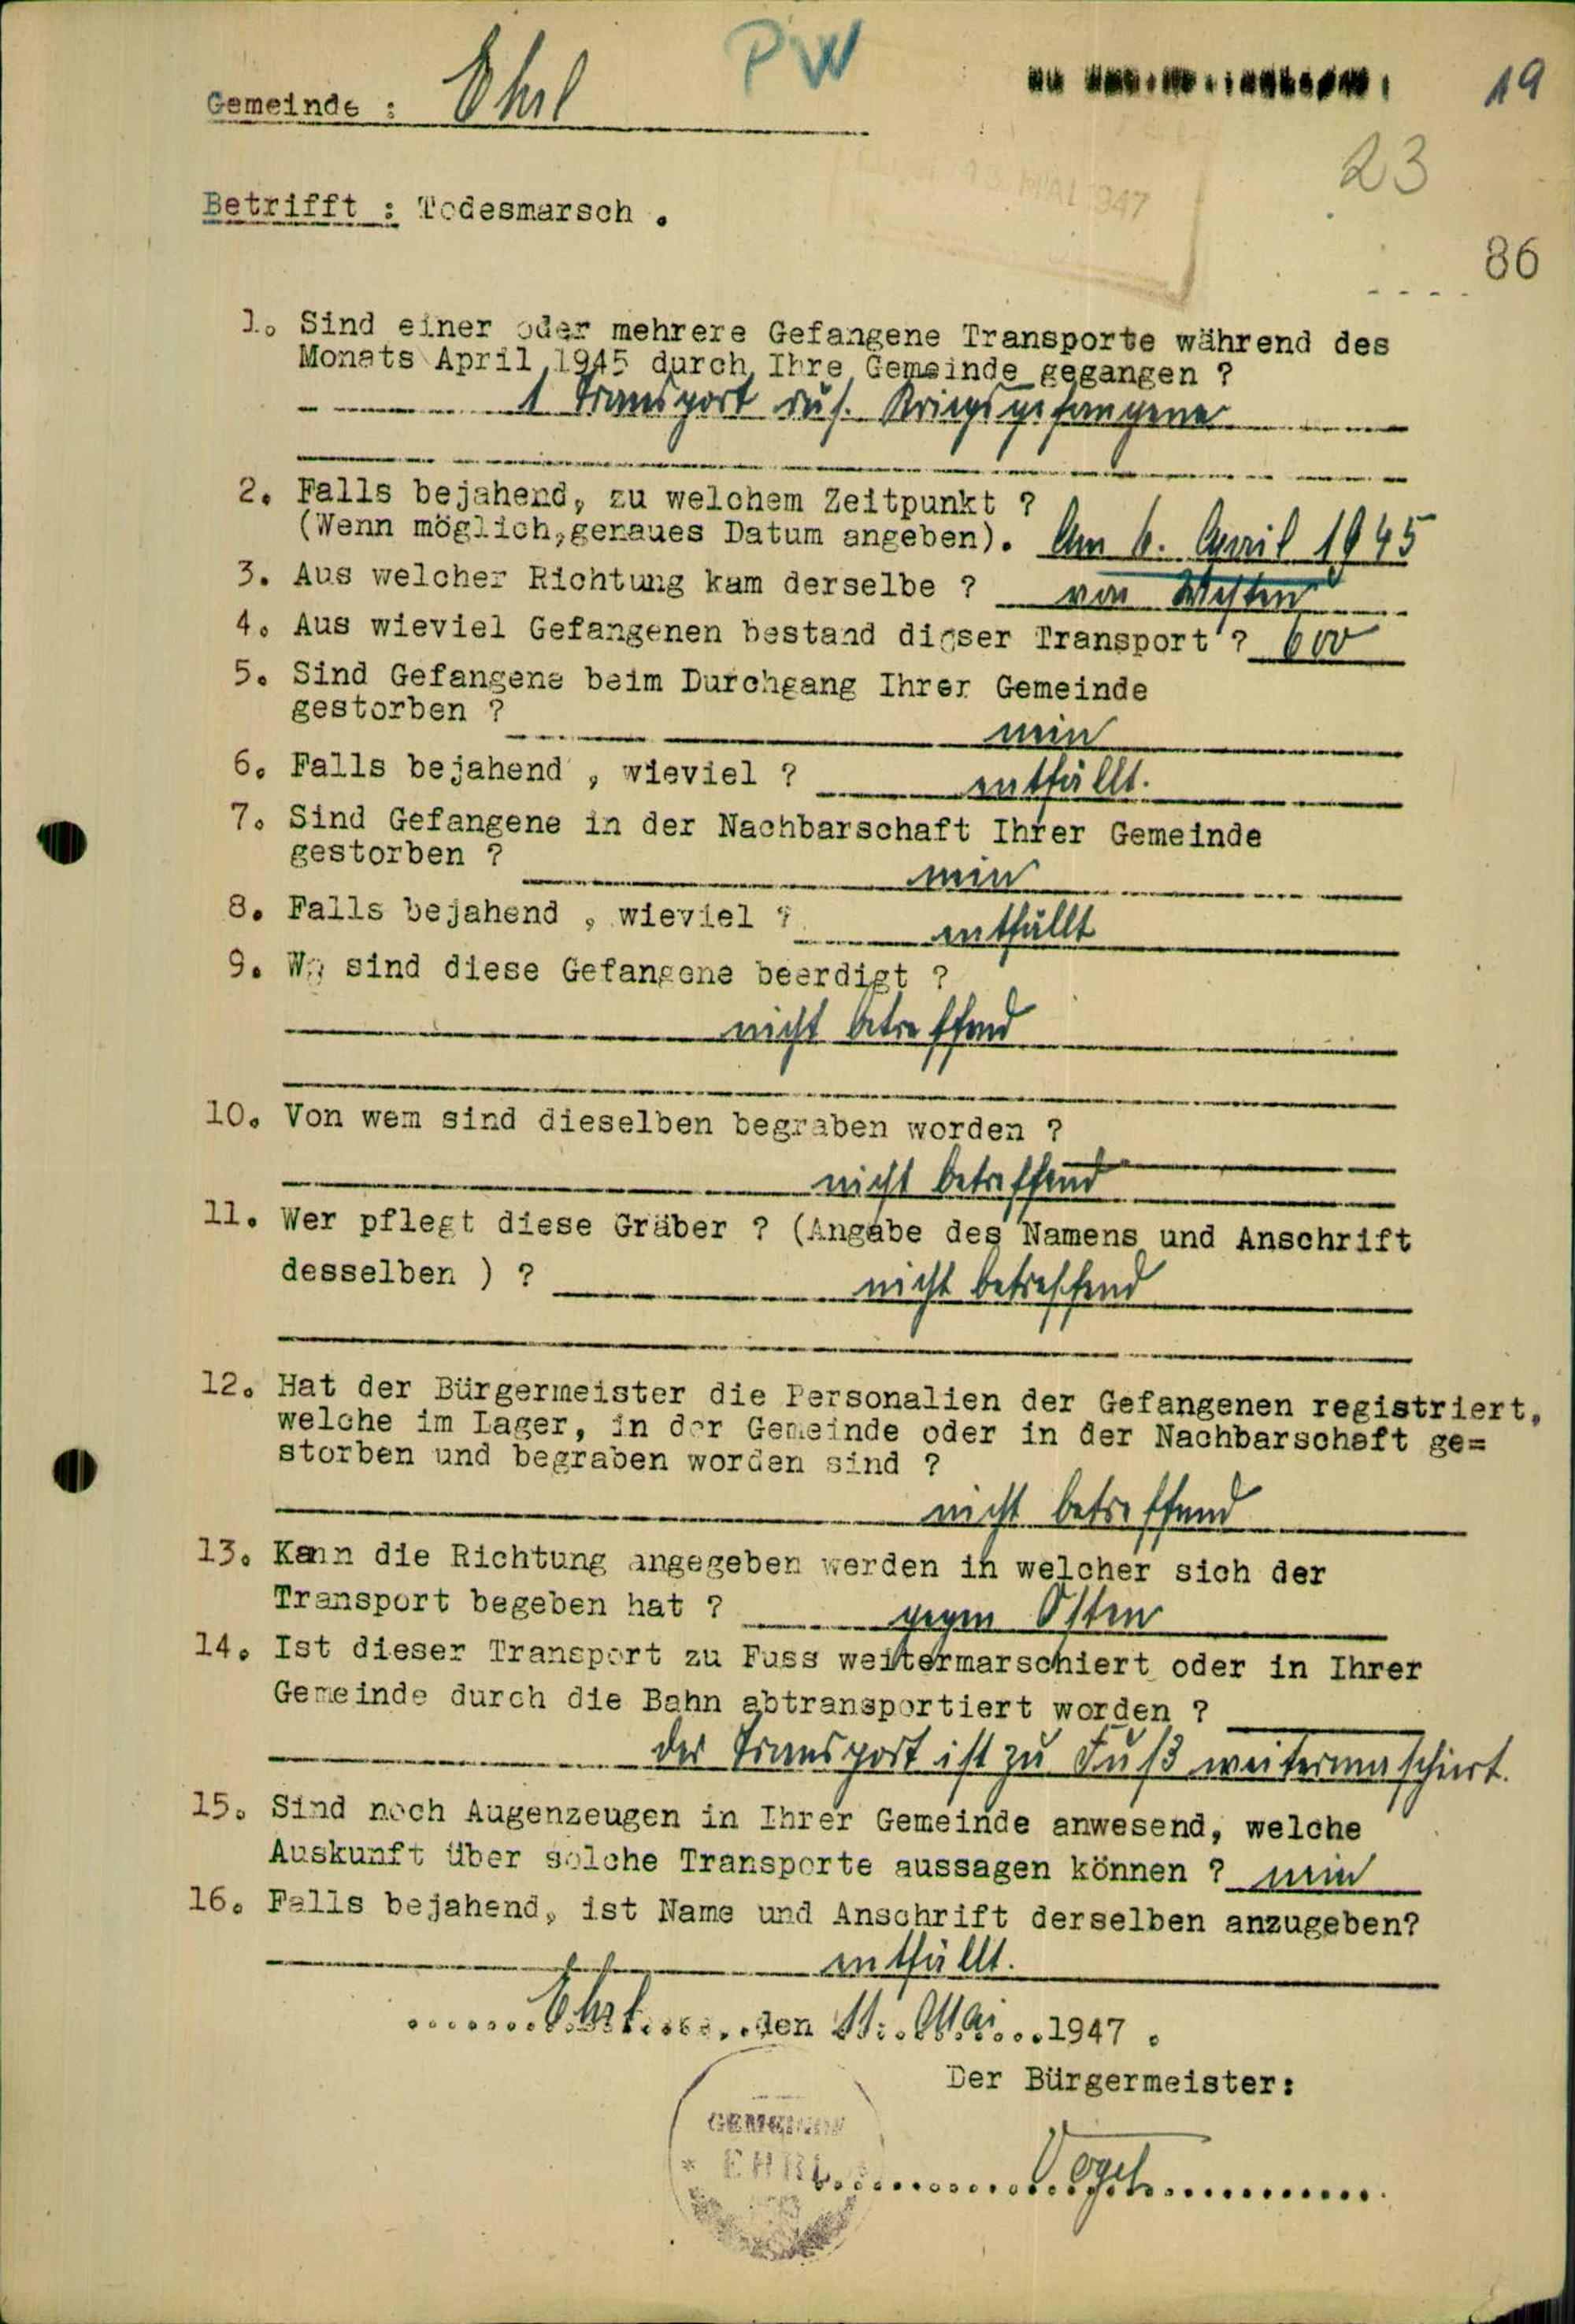 PW
19
Gemeinde : Ehrl
23
Betrifft : Todesmarsch .
MAI 1947
86
1. Sind einer oder mehrere Gefangene Transporte während des
Monats April 1945 durch Ihre Gemeinde gegangen ?
1 Transport rus. Kriegsgefangener
2. Falls bejahend, zu welchem Zeitpunkt ?
(Wenn möglich, genaues Datum angeben). Am 6. April 1945
3. Aus welcher Richtung kam derselbe ? von Westen
4. Aus wieviel Gefangenen bestand dieser Transport ? 600
5. Sind Gefangene beim Durchgang Ihrer Gemeinde
gestorben ? nein
6. Falls bejahend , wieviel ? entfällt.
7. Sind Gefangene in der Nachbarschaft Ihrer Gemeinde
gestorben ? nein
8. Falls bejahend , wieviel ? entfällt
9. Wo sind diese Gefangene beerdigt ?
nicht betreffend
10. Von wem sind dieselben begraben worden ?
nicht betreffend
11. Wer pflegt diese Gräber ? (Angabe des Namens und Anschrift
desselben ) ? nicht betreffend
12. Hat der Bürgermeister die Personalien der Gefangenen registriert,
welche im Lager, in der Gemeinde oder in der Nachbarschaft ge=
storben und begraben worden sind ?
nicht betreffend
13. Kann die Richtung angegeben werden in welcher sich der
Transport begeben hat ? gegen Osten
14. Ist dieser Transport zu Fuss weitermarschiert oder in Ihrer
Gemeinde durch die Bahn abtransportiert worden ?
der Transport ist zu Fuß weitermaschiert.
15. Sind noch Augenzeugen in Ihrer Gemeinde anwesend, welche
Auskunft über solche Transporte aussagen können ? nein
16. Falls bejahend, ist Name und Anschrift derselben anzugeben?
entfällt.
Ehrl, den 11. Mai 1947 .
Der Bürgermeister:
GEMEINDE
* EHRL
Vogel